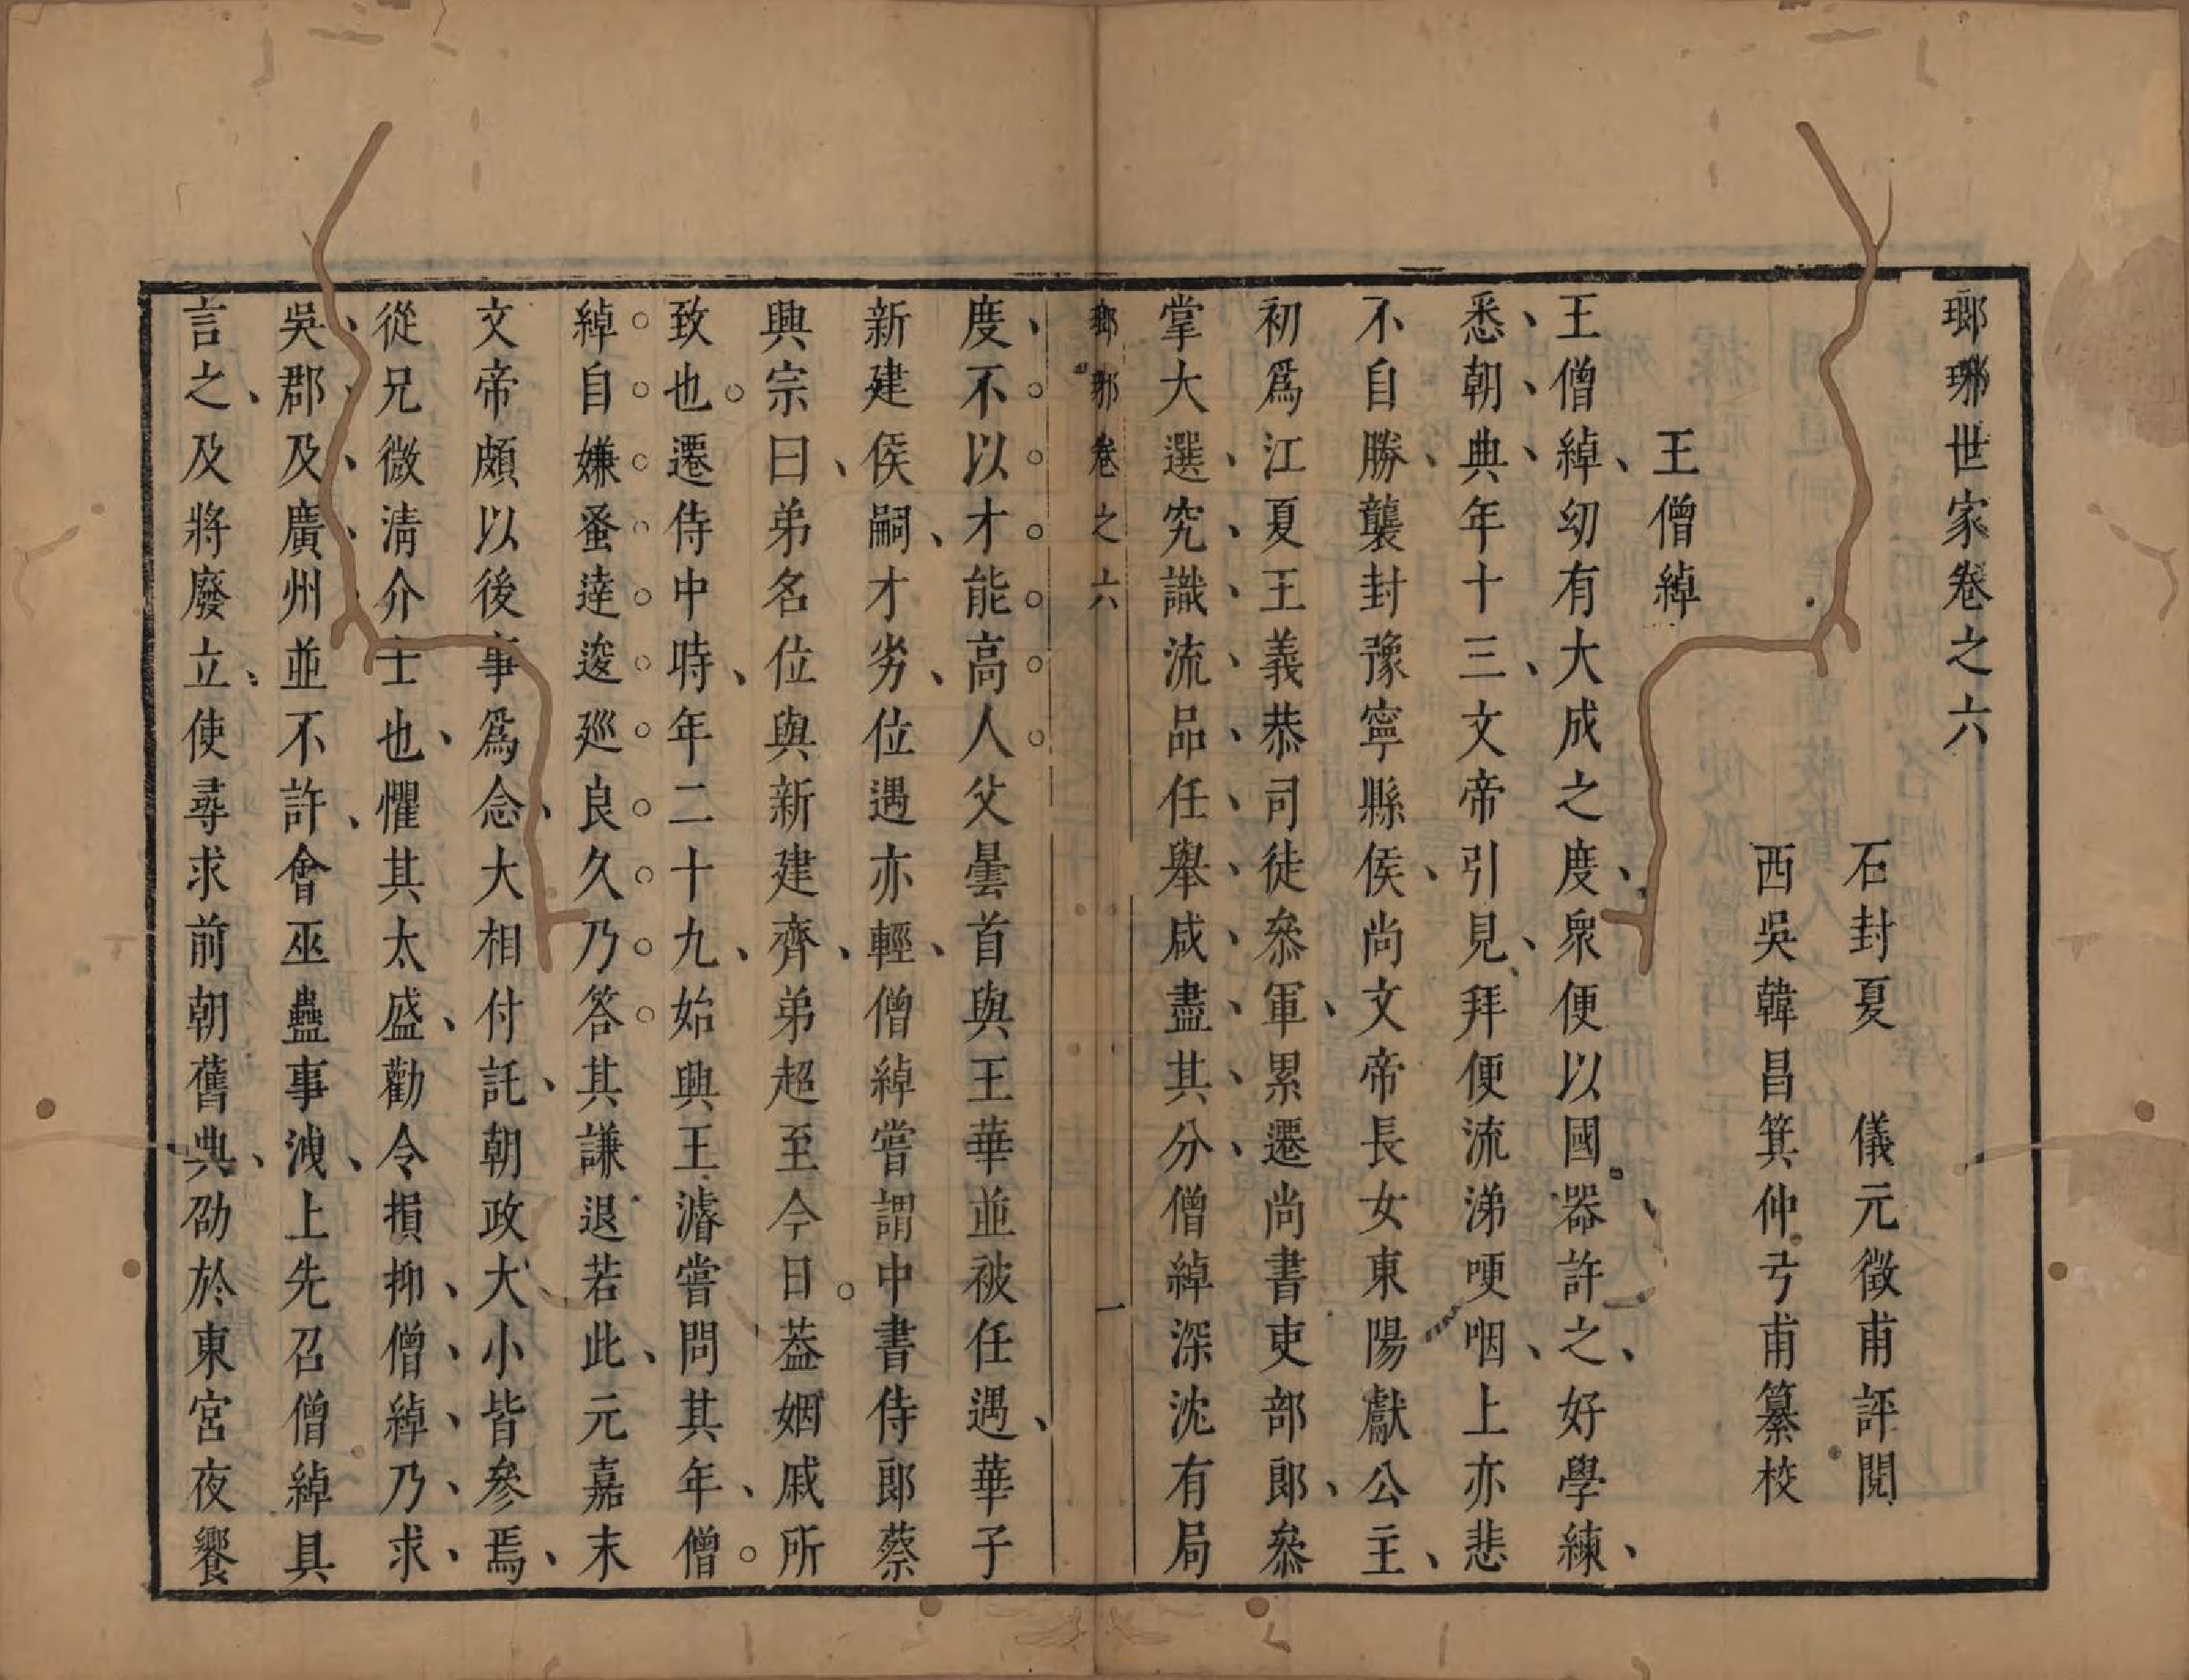 瑯琊世家卷之六
石封夏 儀元徵甫評閱
西吳韓昌箕仲弓甫纂校
王僧綽
王僧綽、幼有大成之度、衆便以國器許之、好學練、
悉、朝、典、年十三、文帝引見、拜便流涕哽咽、上亦悲
不自勝、襲封豫寧縣侯、尚文帝長女東陽獻公主、
初爲江夏王義恭司徒叅軍、累遷尚書吏部郎、叅
掌大選、究、識、流、品、任、舉、咸、盡、其、分、僧綽深沈有局
瑯琊 卷之六 一
度、不。以。才。能。高。人。父曇首與王華並被任遇、華子
新建侯嗣、才劣、位遇亦輕、僧綽嘗謂中書侍郎蔡
興宗曰、弟名位與新建齊、弟超至今日。葢姻戚所
致也。遷侍中時、年二十九、始興王濬嘗問其年、僧。
綽。自。嫌。蚤。逹。逡。廵。良。久。乃。答。其謙退若此、元嘉末
文帝頗以後事爲念、大相付託、朝政大小皆參焉、
從兄微清介士也、懼其太盛、勸令損抑、僧、綽、乃、求、
吳、郡、及、廣、州、並不許、會巫蠱事洩、上先召僧綽具
言之、及將廢立、使尋求前朝舊典、劭於東宮夜饗